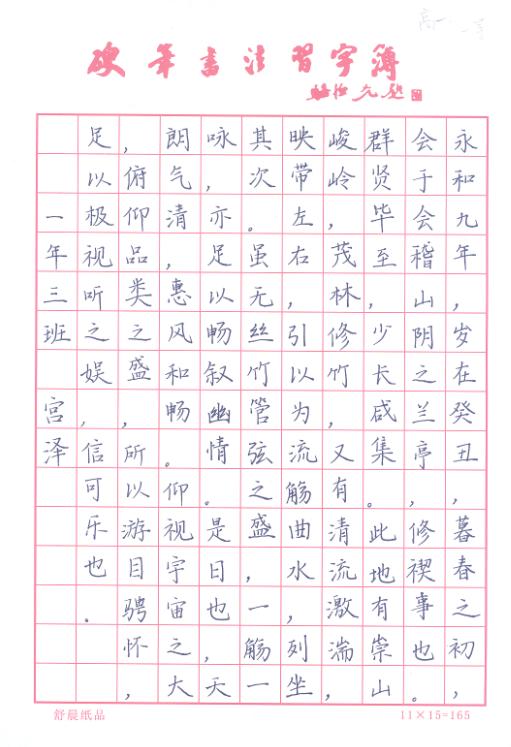 硬筆書法習字簿
永和九年，岁在癸丑，暮春之初，
会于会稽山阴之兰亭，修禊事也。
群贤毕至，少长咸集。此地有崇山
峻岭，茂林修竹，又有清流激湍，
映带左右，引以为流觞曲水，列坐
其次。虽无丝竹管弦之盛，一觞一
咏，亦足以畅叙幽情。是日也，天
朗气清，惠风和畅。仰视宇宙之大
，俯仰品类之盛，所以游目骋怀，
足以极视听之娱，信可乐也。
一年三班 宫泽
舒晨纸品
11×15=165